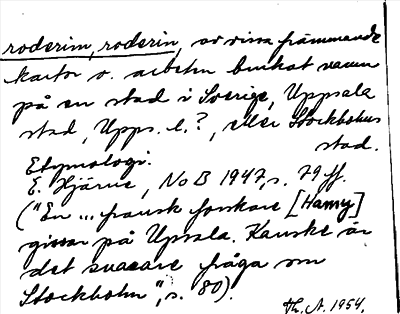 roderim, roderin, av vissa främmande
kartor o. arbeten brukat namn
på en stad i Sverige, Uppsala
stad, Upps. l.?, eller Stockholms
stad.
Etymologi.
E. Hjärne, NoB 1947, s. 79 ff.
("En ... fransk forskare [Hamy]
gissar på Upsala. Kanske är
det snarare fråga om
Stockholm", s. 80).
Th. A. 1954.